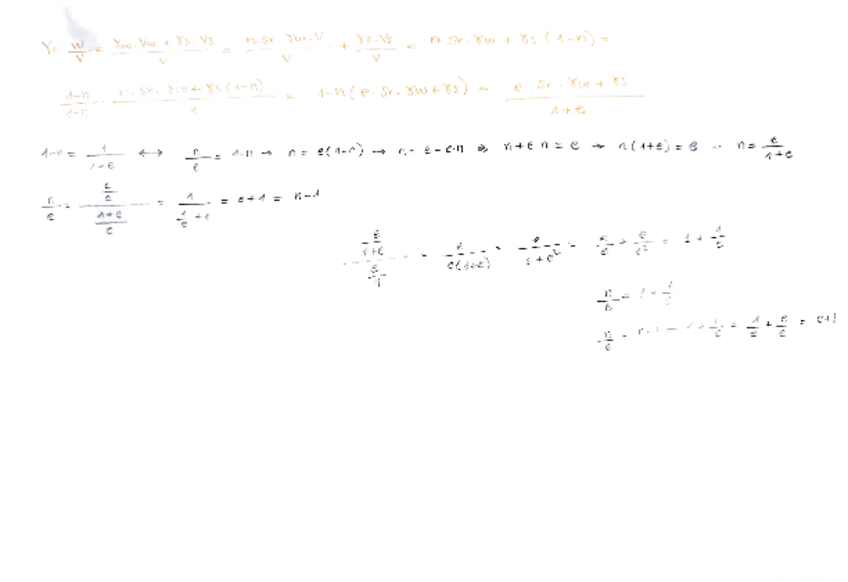 γ = W/V = (γw·Vw + γs·Vs)/V = (n·Sr·γw·V)/V + (γs·Vs)/V = n·Sr·γw + γs(1-n) =
(1-n)/(1-n) · (n·Sr·γw + γs(1-n))/1 = 1-n(e·Sr·γw + γs) = (e·Sr·γw + γs)/(1+e)
1-n = 1/(1+e) ↔ n/e = 1-n → n = e(1-n) → n = e-e·n ⇒ n+e n = e → n(1+e) = e n = e/(1+e)
n/e = (e/e)/((1+e)/e) = 1/(1/e + 1) = e+1 = n-1
(e/(1+e))/(e/1) = e/(e(1+e)) = e/(1+e²) = e/e + e/e² = 1 + 1/e
n/e = 1 + 1/e
n/e = 1/e + e/e = e+1